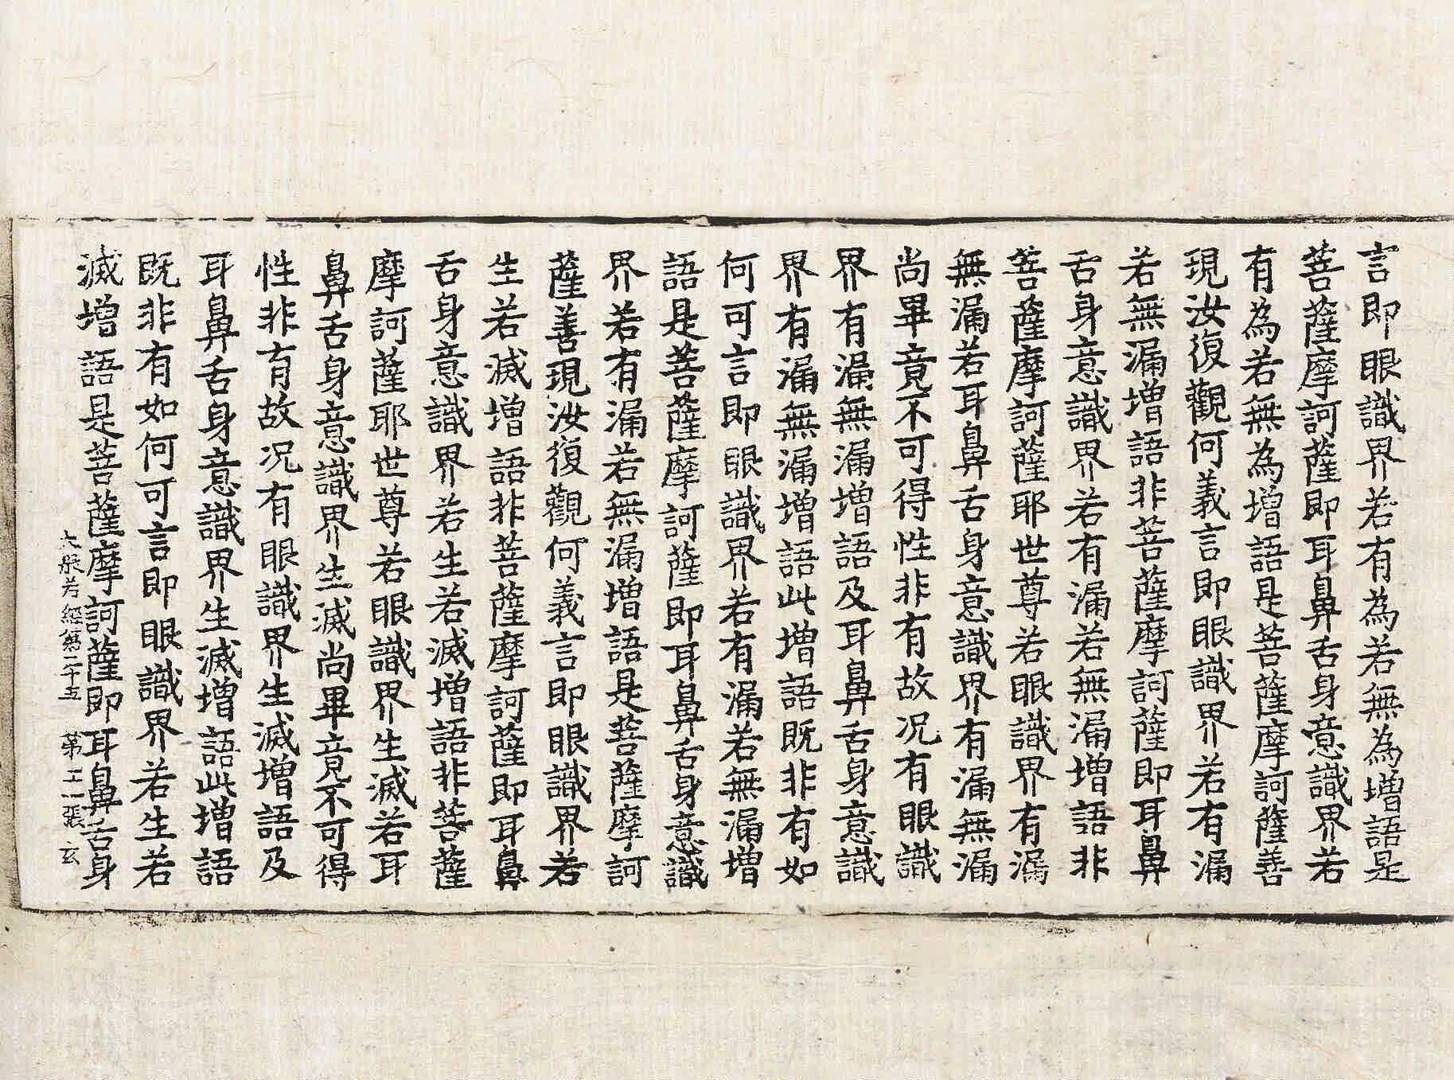 言即眼識界若有為若無為增語是
菩薩摩訶薩即耳鼻舌身意識界若
有為若無為增語是菩薩摩訶薩善
現汝復觀何義言即眼識界若有漏
若無漏增語非菩薩摩訶薩即耳鼻
舌身意識界若有漏若無漏增語非
菩薩摩訶薩耶世尊若眼識界有漏
無漏若耳鼻舌身意識界有漏無漏
尚畢竟不可得性非有故况有眼識
界有漏無漏增語及耳鼻舌身意識
界有漏無漏增語此增語既非有如
何可言即眼識界若有漏若無漏增
語是菩薩摩訶薩即耳鼻舌身意識
界若有漏若無漏增語是菩薩摩訶
薩善現汝復觀何義言即眼識界若
生若滅增語非菩薩摩訶薩即耳鼻
舌身意識界若生若滅增語非菩薩
摩訶薩耶世尊若眼識界生滅若耳
鼻舌身意識界生滅尚畢竟不可得
性非有故况有眼識界生滅增語及
耳鼻舌身意識界生滅增語此增語
既非有如何可言即眼識界若生若
滅增語是菩薩摩訶薩即耳鼻舌身
大般若經第二十五 第十二張 玄